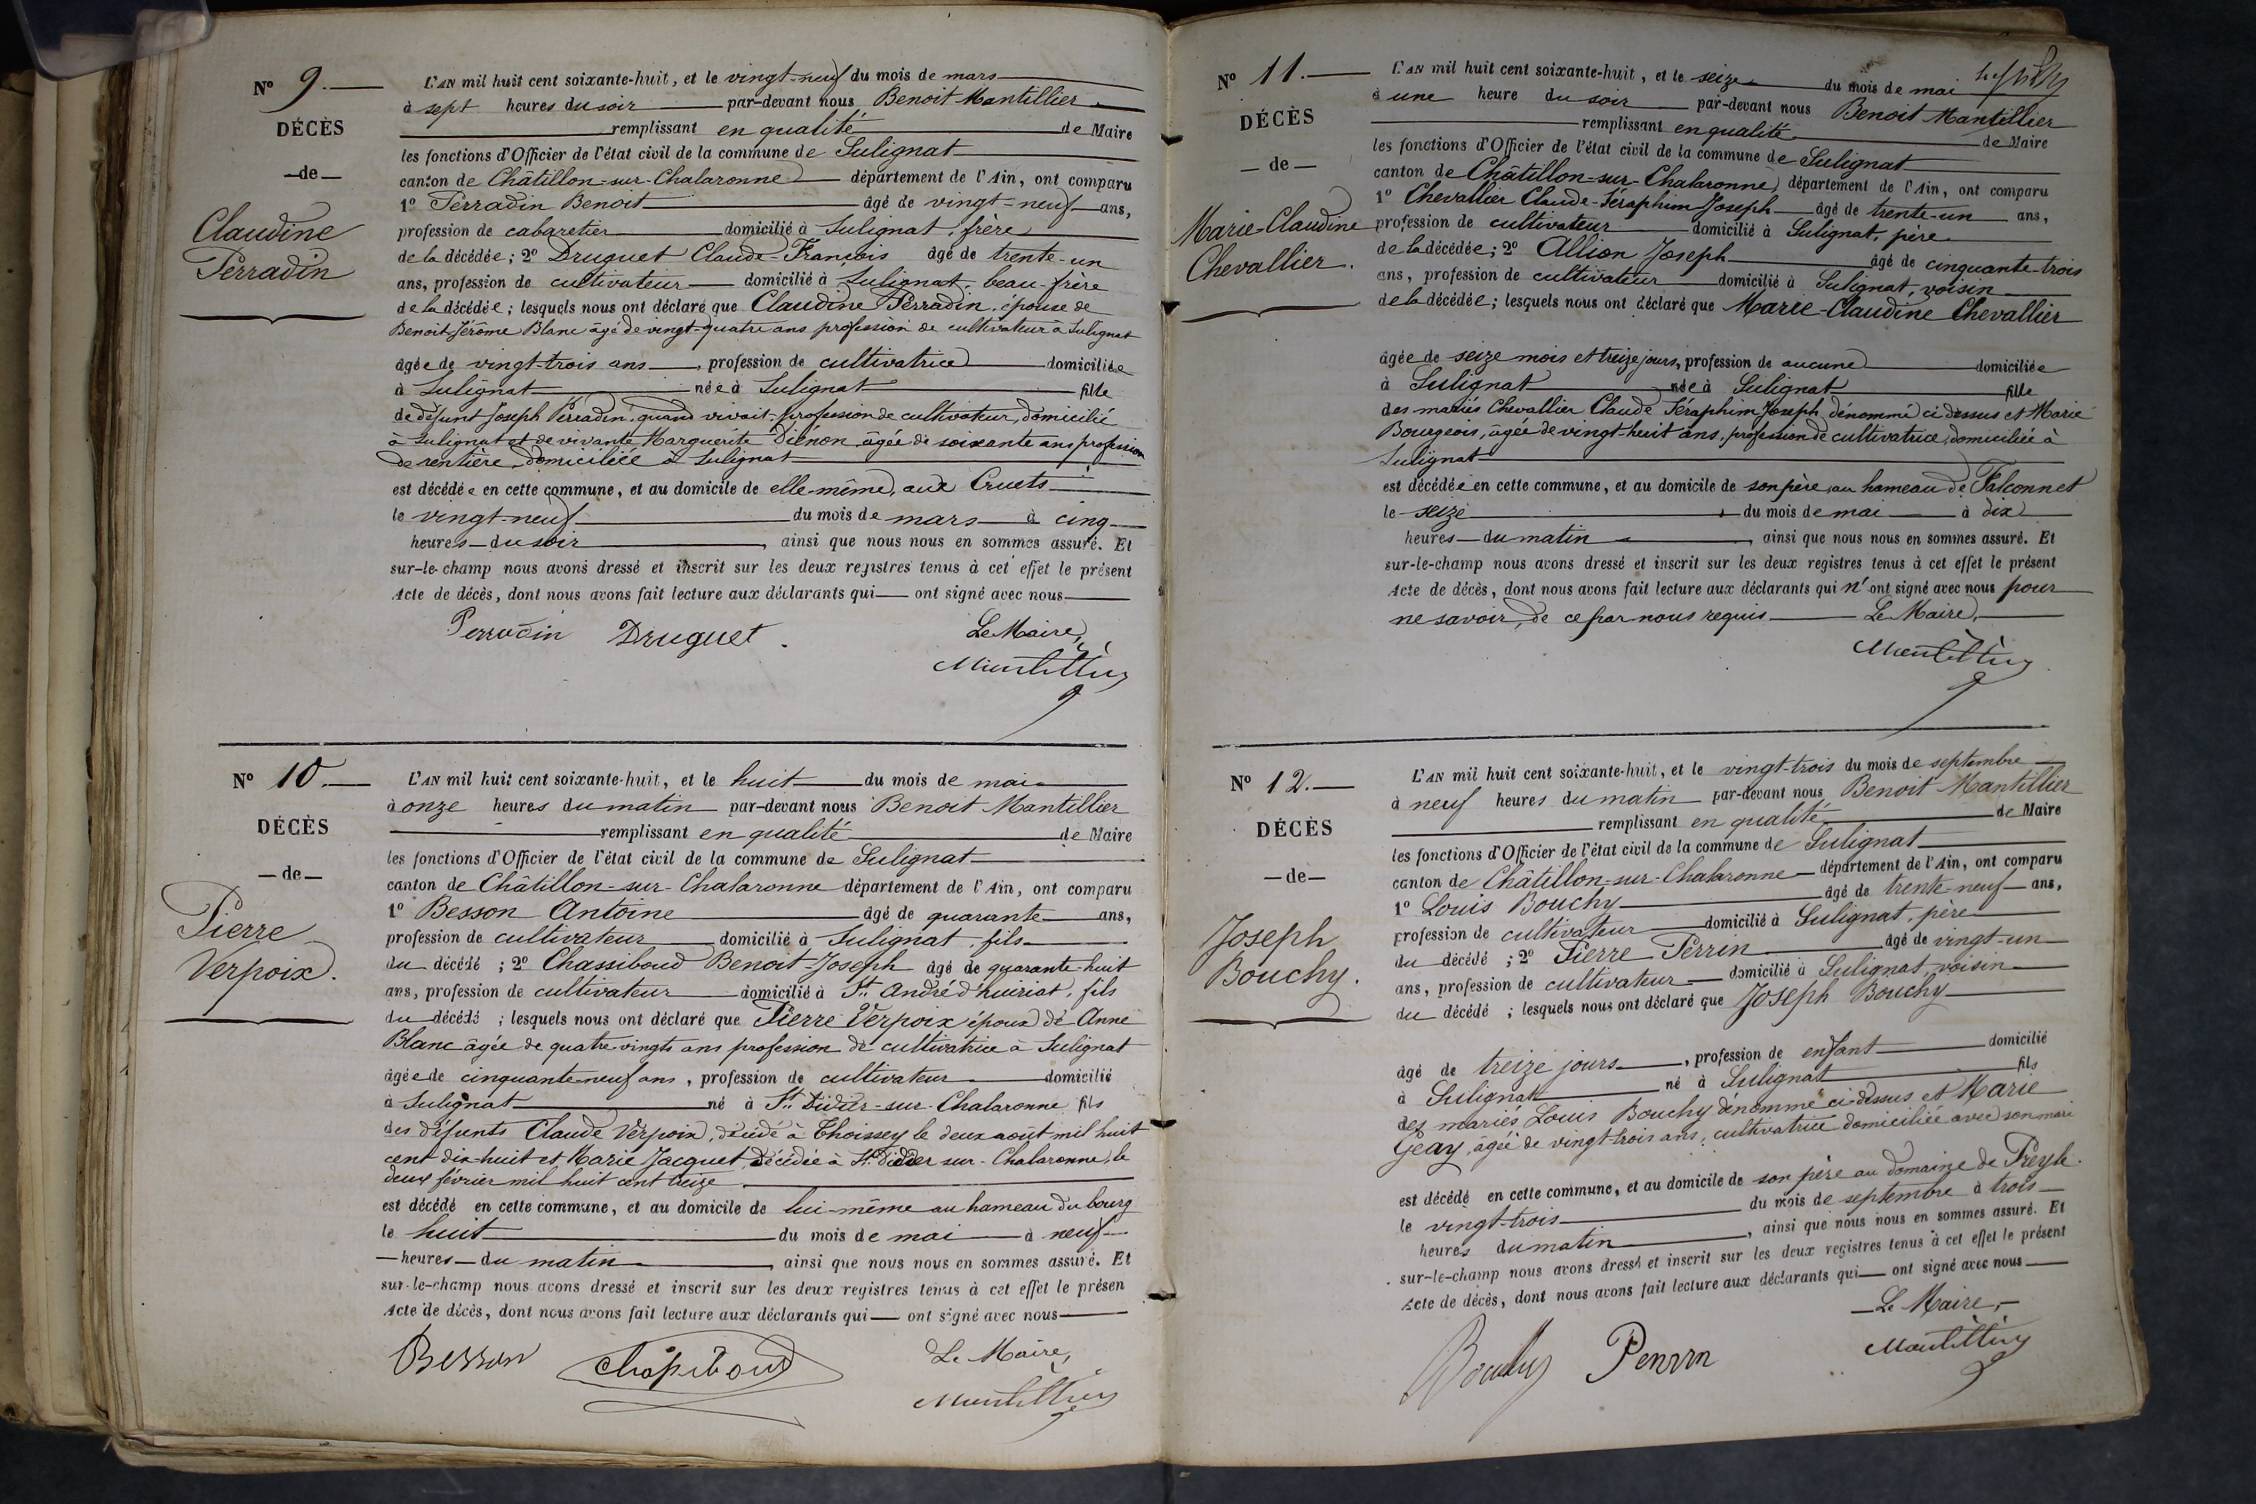 N° 9.
DÉCÈS
—de—
Claudine
Perradin
L'AN mil huit cent soixante-huit, et le vingt-neuf du mois de mars
à sept heures du soir par-devant nous Benoit Mantillier
remplissant en qualité de Maire
les fonctions d'Officier de l'état civil de la commune de Sulignat
canton de Châtillon-sur-Chalaronne département de l'Ain, ont comparu
1° Perradin Benoit âgé de vingt-neuf ans,
profession de cabaretier domicilié à Sulignat, frère
de la décédée; 2° Druguet Claude-François âgé de trente-un
ans, profession de cultivateur domicilié à Sulignat, beau-frère
de la décédée; lesquels nous ont déclaré que Claudine Perradin, épouse de
Benoit Jérôme Blanc âgé de vingt-quatre ans profession de cultivateur à Sulignat
âgée de vingt-trois ans, profession de cultivatrice domiciliée
à Sulignat née à Sulignat fille
de défunt Joseph Perradin, quand vivait profession de cultivateur, domicilié
à Sulignat et de vivante Marguerite Diénon âgée de soixante ans profession
de rentière, domiciliée à Sulignat
est décédée en cette commune, et au domicile de elle-même, aux Cruets
le vingt-neuf du mois de mars à cinq
heures du soir, ainsi que nous nous en sommes assuré. Et
sur-le-champ nous avons dressé et inscrit sur les deux registres tenus à cet effet le présent
Acte de décès, dont nous avons fait lecture aux déclarants qui — ont signé avec nous
Perradin Druguet.
Le Maire,
Mantillier
N° 10.
DÉCÈS
—de—
Pierre
Verpoix.
L'AN mil huit cent soixante-huit, et le huit du mois de mai
à onze heures du matin par-devant nous Benoit Mantillier
remplissant en qualité de Maire
les fonctions d'Officier de l'état civil de la commune de Sulignat
canton de Châtillon-sur-Chalaronne département de l'Ain, ont comparu
1° Besson Antoine âgé de quarante ans,
profession de cultivateur domicilié à Sulignat, fils
du décédé; 2° Chassiboud Benoit-Joseph âgé de quarante-huit
ans, profession de cultivateur domicilié à St. André d'huiriat, fils
du décédé; lesquels nous ont déclaré que Pierre Verpoix époux de Anne
Blanc âgée de quatre-vingts ans profession de cultivatrice à Sulignat
âgée de cinquante-neuf ans, profession de cultivateur domicilié
à Sulignat né à St. Didier-sur-Chalaronne fils
des défunts Claude Verpoix, décédé à Thoissey le deux août mil huit
cent dix-huit et Marie Jacquet, décédée à St. Didier sur-Chalaronne, le
deux février mil huit cent treize
est décédé en cette commune, et au domicile de lui-même au hameau du bourg
le huit du mois de mai à neuf
heures du matin, ainsi que nous nous en sommes assuré. Et
sur-le-champ nous avons dressé et inscrit sur les deux registres tenus à cet effet le présen
Acte de décès, dont nous avons fait lecture aux déclarants qui — ont signé avec nous
Besson Chassiboud
Le Maire,
Mantillier
N° 11.
DÉCÈS
—de—
Marie-Claudine
Chevallier.
L'AN mil huit cent soixante-huit, et le seize du mois de mai
à une heure du soir par-devant nous Benoit Mantillier
remplissant en qualité de Maire
les fonctions d'Officier de l'état civil de la commune de Sulignat
canton de Châtillon-sur-Chalaronne, département de l'Ain, ont comparu
1° Chevallier Claude-Séraphim Joseph âgé de trente-un ans,
profession de cultivateur domicilié à Sulignat, père
de la décédée; 2° Allion Joseph âgé de cinquante-trois
ans, profession de cultivateur domicilié à Sulignat, voisin
de la décédée; lesquels nous ont déclaré que Marie-Claudine Chevallier
âgée de seize mois et treize jours, profession de aucune domiciliée
à Sulignat née à Sulignat fille
des mariés Chevallier Claude Séraphim Joseph, dénommé ci dessus et Marie
Bourgeois, âgée de vingt-huit ans, profession de cultivatrice, domiciliée à
Sulignat
est décédée en cette commune, et au domicile de son père, au hameau de Falconnet
le seize du mois de mai à dix
heures du matin, ainsi que nous nous en sommes assuré. Et
sur-le-champ nous avons dressé et inscrit sur les deux registres tenus à cet effet le présent
Acte de décès, dont nous avons fait lecture aux déclarants qui n'ont signé avec nous pour
ne savoir, de ce par nous requis Le Maire,
Mantillier
N° 12.
DÉCÈS
—de—
Joseph
Bouchy.
L'AN mil huit cent soixante-huit, et le vingt-trois du mois de septembre
à neuf heures du matin par-devant nous Benoit Mantillier
remplissant en qualité de Maire
les fonctions d'Officier de l'état civil de la commune de Sulignat
canton de Châtillon-sur-Chalaronne département de l'Ain, ont comparu
1° Louis Bouchy âgé de trente-neuf ans,
profession de cultivateur domicilié à Sulignat, père
du décédé; 2° Pierre Perrin âgé de vingt-un
ans, profession de cultivateur domicilié à Sulignat, voisin
du décédé; lesquels nous ont déclaré que Joseph Bouchy
âgé de treize jours, profession de enfant domicilié
à Sulignat né à Sulignat fils
des mariés Louis Bouchy dénommé ci-dessus et Marie
Geay, âgée de vingt-trois ans, cultivatrice domiciliée avec son mari
est décédé en cette commune, et au domicile de son père au domaine de Preyle.
le vingt-trois du mois de septembre à trois
heures du matin, ainsi que nous nous en sommes assuré. Et
sur-le-champ nous avons dressé et inscrit sur les deux registres tenus à cet effet le présent
Acte de décès, dont nous avons fait lecture aux déclarants qui — ont signé avec nous
Le Maire,
Bouchy Perrin
Mantillier